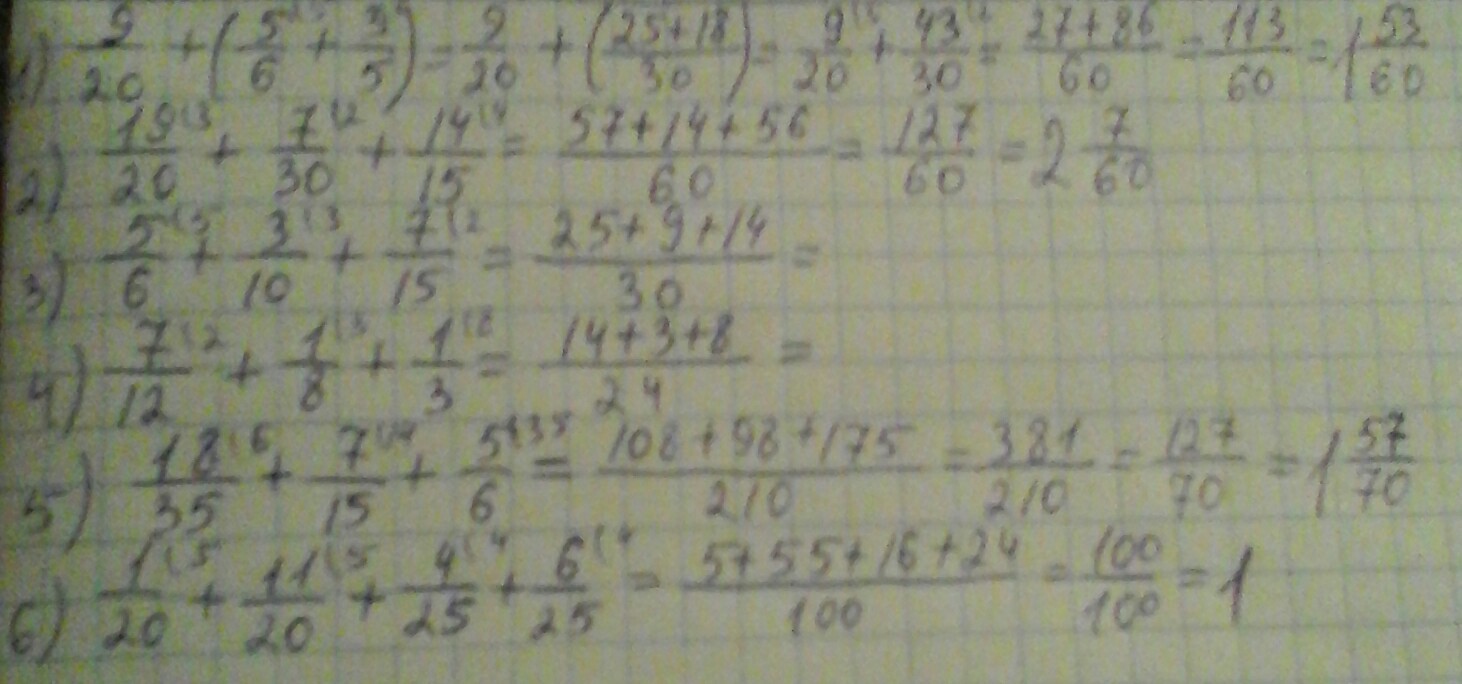 1) 9/20 + (5⁽⁵/6 + 3/5) = 9/20 + (25+18/30) = 9⁽³/20 + 43⁽²/30 = 27+86/60 = 113/60 = 1 53/60
2) 19⁽³/20 + 7⁽²/30 + 14⁽⁴/15 = 57+14+56/60 = 127/60 = 2 7/60
3) 5⁽⁵/6 + 3⁽³/10 + 7⁽²/15 = 25+9+14/30 =
4) 7⁽²/12 + 1⁽³/8 + 1⁽⁸/3 = 14+3+8/24 =
5) 18⁽⁶/35 + 7⁽¹⁴/15 + 5⁽³⁵/6 = 108+98+175/210 = 381/210 = 127/70 = 1 57/70
6) 1⁽⁵/20 + 11⁽⁵/20 + 4⁽⁴/25 + 6⁽⁴/25 = 5+55+16+24/100 = 100/100 = 1